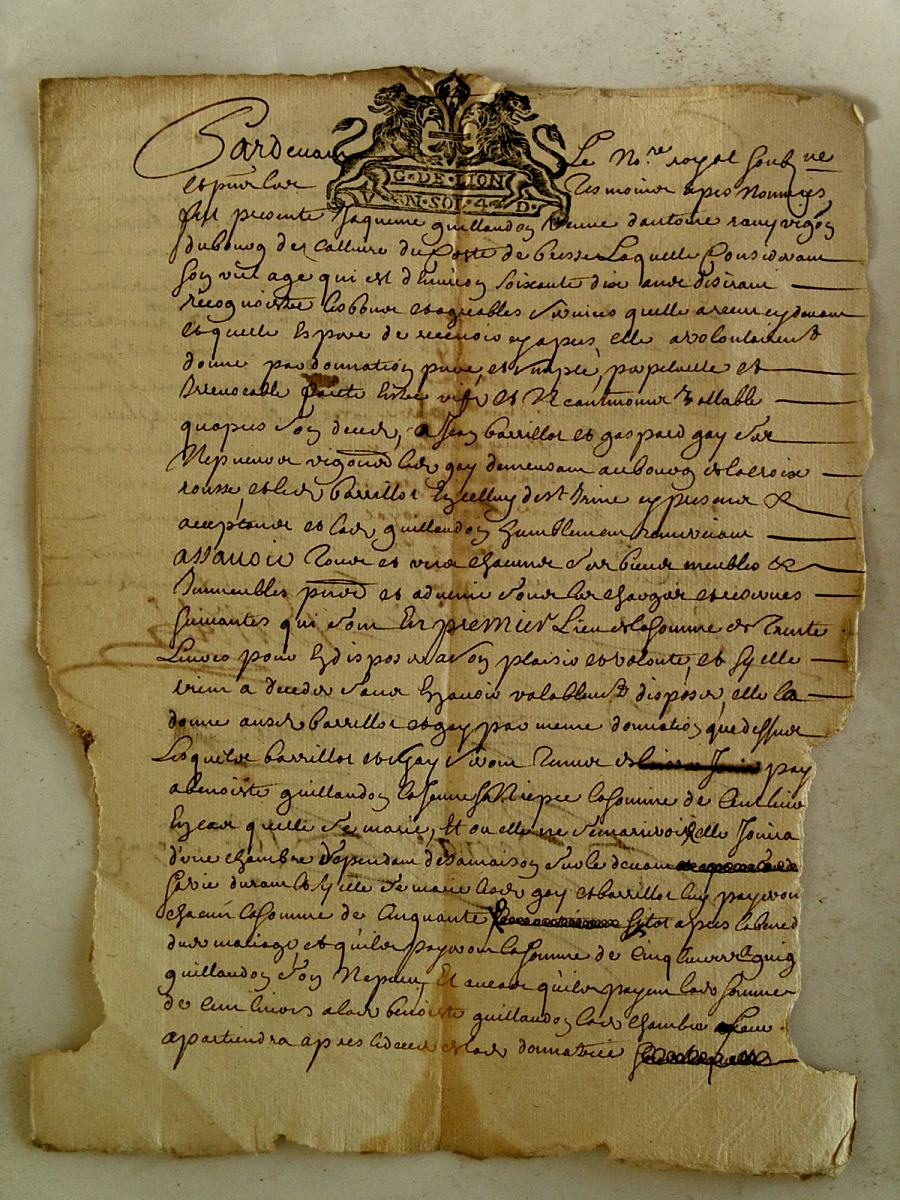 Pardevant Le No.re royal Soubz.ne
G·DE·LION
V N·SOL·4·D·
et present les tesmoins apres Nommes
fut presente Jaqueme guillaudon veuve dantoine ramy vigon
du bourg des de laquelle Considerant
son vieil age qui est d'Environ soixante dix ans desirant
recognoistre les bons et agreables services quelle a receu cy devant
et quelle Espere de recevoir cy apres, elle a volontairemt
donne par donnation pure, et simple, perpetuelle et
Irrevocable faite Entre vifs, et vallable
quapres son deces, a Jean barrillot et gaspard gay ses
Nepveux vigerons led. gay demeurant au bourg de la croix
rousse, et led. barrillot cy presens &
acceptans et lad. guillaudon humblement remerciant
assavoir tous et uns chacuns ses biens meubles &
Immeubles pnts et advenir sous les charges et reserves
suivantes qui sont En premier Lieu de la somme de trente
Livres pour En disposer a son plaisir et volonte, et sy elle
vient a deceder sans En avoir valablemt disposer, elle la
donne ausd. barrillot et gay par meme donnation que dessus
Lesquels barrillot et Gay seront tenus de pay
a benoiste guillaudon la Jeune sa Niepce la somme de Cent livres
En cas quelle se marie, Et ou elle ne se marieroit elle Jouira
d'une chambre dependant de sa maison sur le devant
sa vie durant et sy elle se marie lesd. gay et barrillot luy payeront
chacun la somme de Cinquante sytot apres la bened
du mariage, et quils payeront la somme de Cinq livres
guillaudon son Nepveu, Et au cas quils payent lad. somme
de cent livres a lad. benoiste guillaudon lad. chambre Leur
apartiendra apres le deces de lad. donnatrice